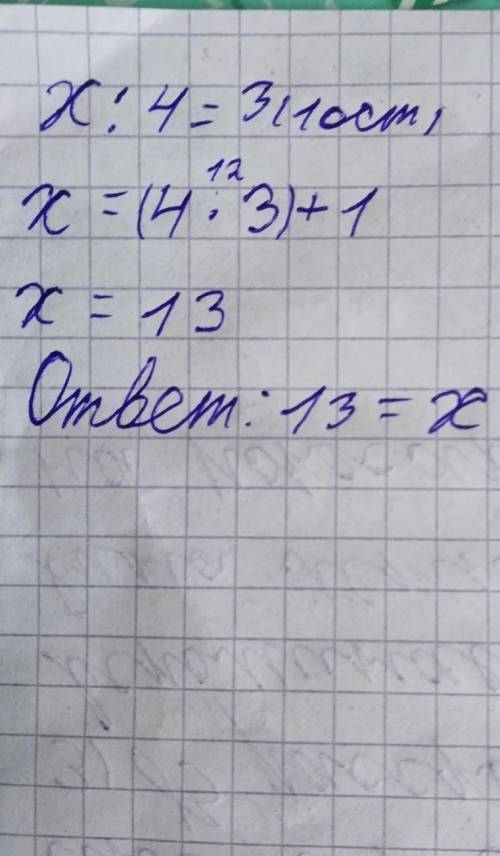 x : 4 = 3(1 ост)
x = (4 · 3) + 1
12
x = 13
Ответ: 13 = x